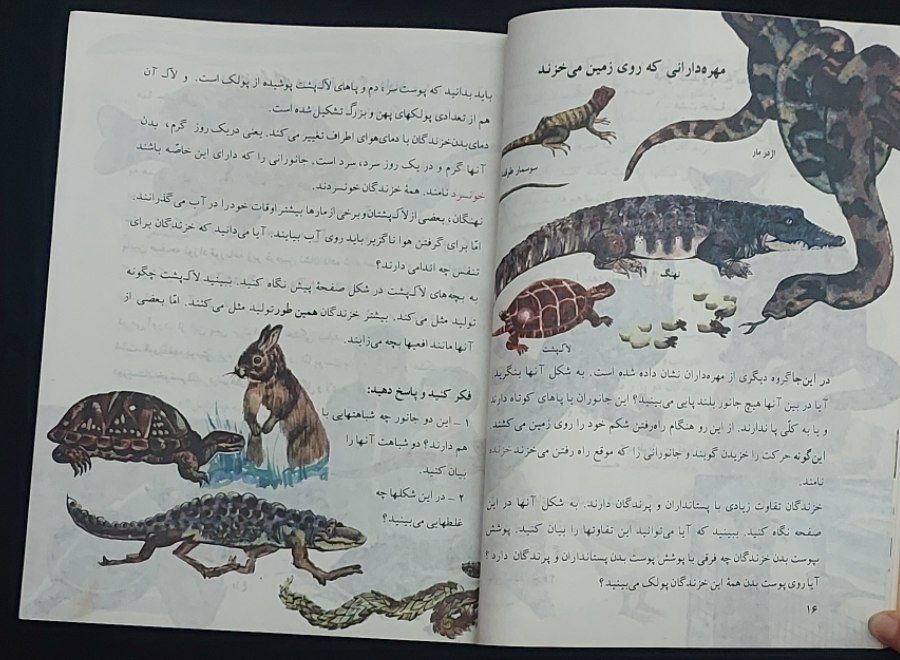 مهره‌دارانی که روی زمین می‌خزند
اژدر مار
سوسمار
نهنگ
لاک‌پشت
در این‌جا گروه دیگری از مهره‌داران نشان داده شده است. به شکل آنها بنگرید
آیا در بین آنها هیچ جانور بلندپایی می‌بینید؟ این جانوران یا پاهای کوتاه دارند
و یا به کلّی پا ندارند. از این رو هنگام راه‌رفتن شکم خود را روی زمین می‌کشند.
این‌گونه حرکت را خزیدن گویند و جانورانی را که موقع راه رفتن می‌خزند خزنده
نامند.
خزندگان تفاوت زیادی با پستانداران و پرندگان دارند. به شکل آنها در این
صفحه نگاه کنید. ببینید که آیا می‌توانید این تفاوتها را بیان کنید. پوشش
پوست بدن خزندگان چه فرقی با پوشش پوست بدن پستانداران و پرندگان دارد؟
آیا روی پوست بدن همهٔ این خزندگان پولک می‌بینید؟
۱۶
باید بدانید که پوست سر، دم و پاهای لاک‌پشت پوشیده از پولک است. و لاک آن
هم از تعدادی پولکهای پهن و بزرگ تشکیل شده است.
دمای بدن خزندگان با دمای هوای اطراف تغییر می‌کند. یعنی در یک روز گرم، بدن
آنها گرم و در یک روز سرد، سرد است. جانورانی را که دارای این خاصّه باشند
خونسرد نامند. همهٔ خزندگان خونسردند.
نهنگان، بعضی از لاک‌پشتان و برخی از مارها بیشتر اوقات خود را در آب می‌گذرانند.
امّا برای گرفتن هوا ناگزیر باید روی آب بیایند. آیا می‌دانید که خزندگان برای
تنفس چه اندامی دارند؟
به بچه‌های لاک‌پشت در شکل صفحهٔ پیش نگاه کنید. ببینید لاک‌پشت چگونه
تولید مثل می‌کند. بیشتر خزندگان همین طور تولید مثل می‌کنند. امّا بعضی از
آنها مانند افعیها بچه می‌زایند.
فکر کنید و پاسخ دهید:
۱ – این دو جانور چه شباهتهایی با
هم دارند؟ دو شباهت آنها را
بیان کنید.
۲ – در این شکلها چه
غلطهایی می‌بینید؟